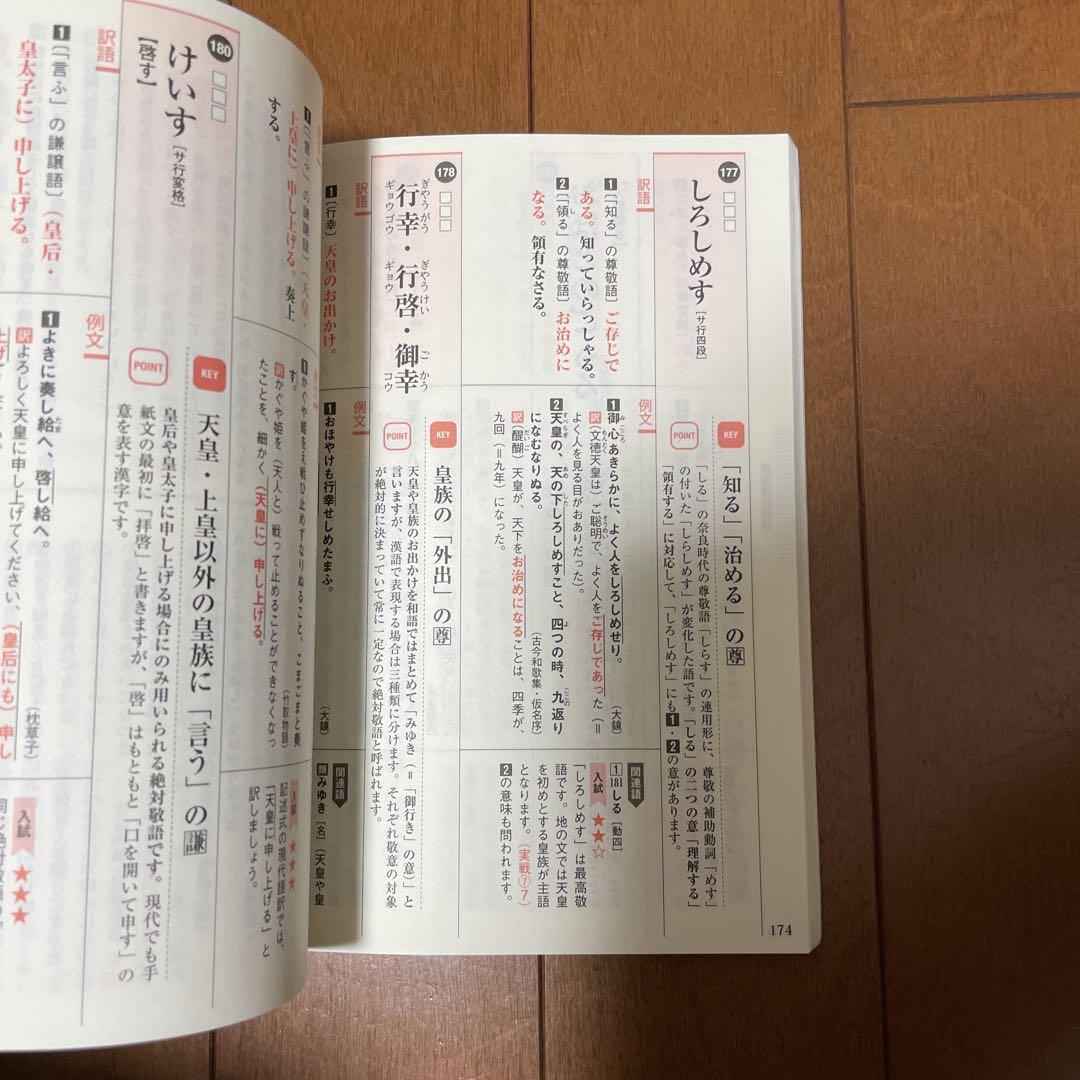 177
しろしめす［サ行四段］
訳語
1〔「知る」の尊敬語〕ご存じで
ある。知っていらっしゃる。
2〔「領る」の尊敬語〕お治めに
なる。領有なさる。
KEY
「知る」「治める」の尊
POINT
「しる」の奈良時代の尊敬語「しらす」の連用形に、尊敬の補助動詞「めす」
の付いた「しらしめす」が変化した語です。「しる」の二つの意「理解する」
「領有する」に対応して、「しろしめす」にも1・2の意があります。
例文
1御心あきらかに、よく人をしろしめせり。（大鏡）
訳（文徳天皇は）ご聡明で、よく人をご存じであった（＝
よく人を見る目がおありだった）。
2天皇の、天の下しろしめすこと、四つの時、九返り
になむなりぬる。（古今和歌集・仮名序）
訳（醍醐）天皇が、天下をお治めになることは、四季が、
九回（＝九年）になった。
関連語
1 181しる［動四］
入試★★☆
「しろしめす」は最高敬
語です。地の文では天皇
を初めとする皇族が主語
となります。（実戦⑦7）
2の意味も問われます。
174
178
行幸・行啓・御幸
ぎやうがう ぎやうけい ごかう
ギョウゴウ ギョウ コウ
訳語
1〔行幸〕天皇のお出かけ。
KEY
皇族の「外出」の尊
POINT
天皇や皇族のお出かけを和語ではまとめて「みゆき（＝「御行き」の意）」と
言いますが、漢語で表現する場合は三種類に分けます。それぞれ敬意の対象
が絶対的に決まっていて常に一定なので絶対敬語と呼ばれます。
例文
1おほやけも行幸せしめたまふ。（大鏡）
関連語
類みゆき［名］（天皇や皇
1〔「言ふ」の謙譲語〕（天皇・
上皇に）申し上げる。奏上
する。
1かぐや姫をえ戦ひ止めずなりぬること、こまごまと奏
す。（竹取物語）
訳かぐや姫を（天人と）戦って止めることができなくなっ
たことを、細かく（天皇に）申し上げる。
入試★★★
記述式の現代語訳では、
「天皇に申し上げる」と
訳しましょう。
180
けいす［サ行変格］
【啓す】
訳語
1〔「言ふ」の謙譲語〕（皇后・
皇太子に）申し上げる。
KEY
天皇・上皇以外の皇族に「言う」の謙
POINT
皇后や皇太子に申し上げる場合にのみ用いられる絶対敬語です。現代でも手
紙文の最初に「拝啓」と書きますが、「啓」はもともと「口を開いて申す」の
意を表す漢字です。
例文
1よきに奏し給へ、啓し給へ。（枕草子）
訳よろしく天皇に申し上げてください、（皇后にも）申し
上げて
入試★★★